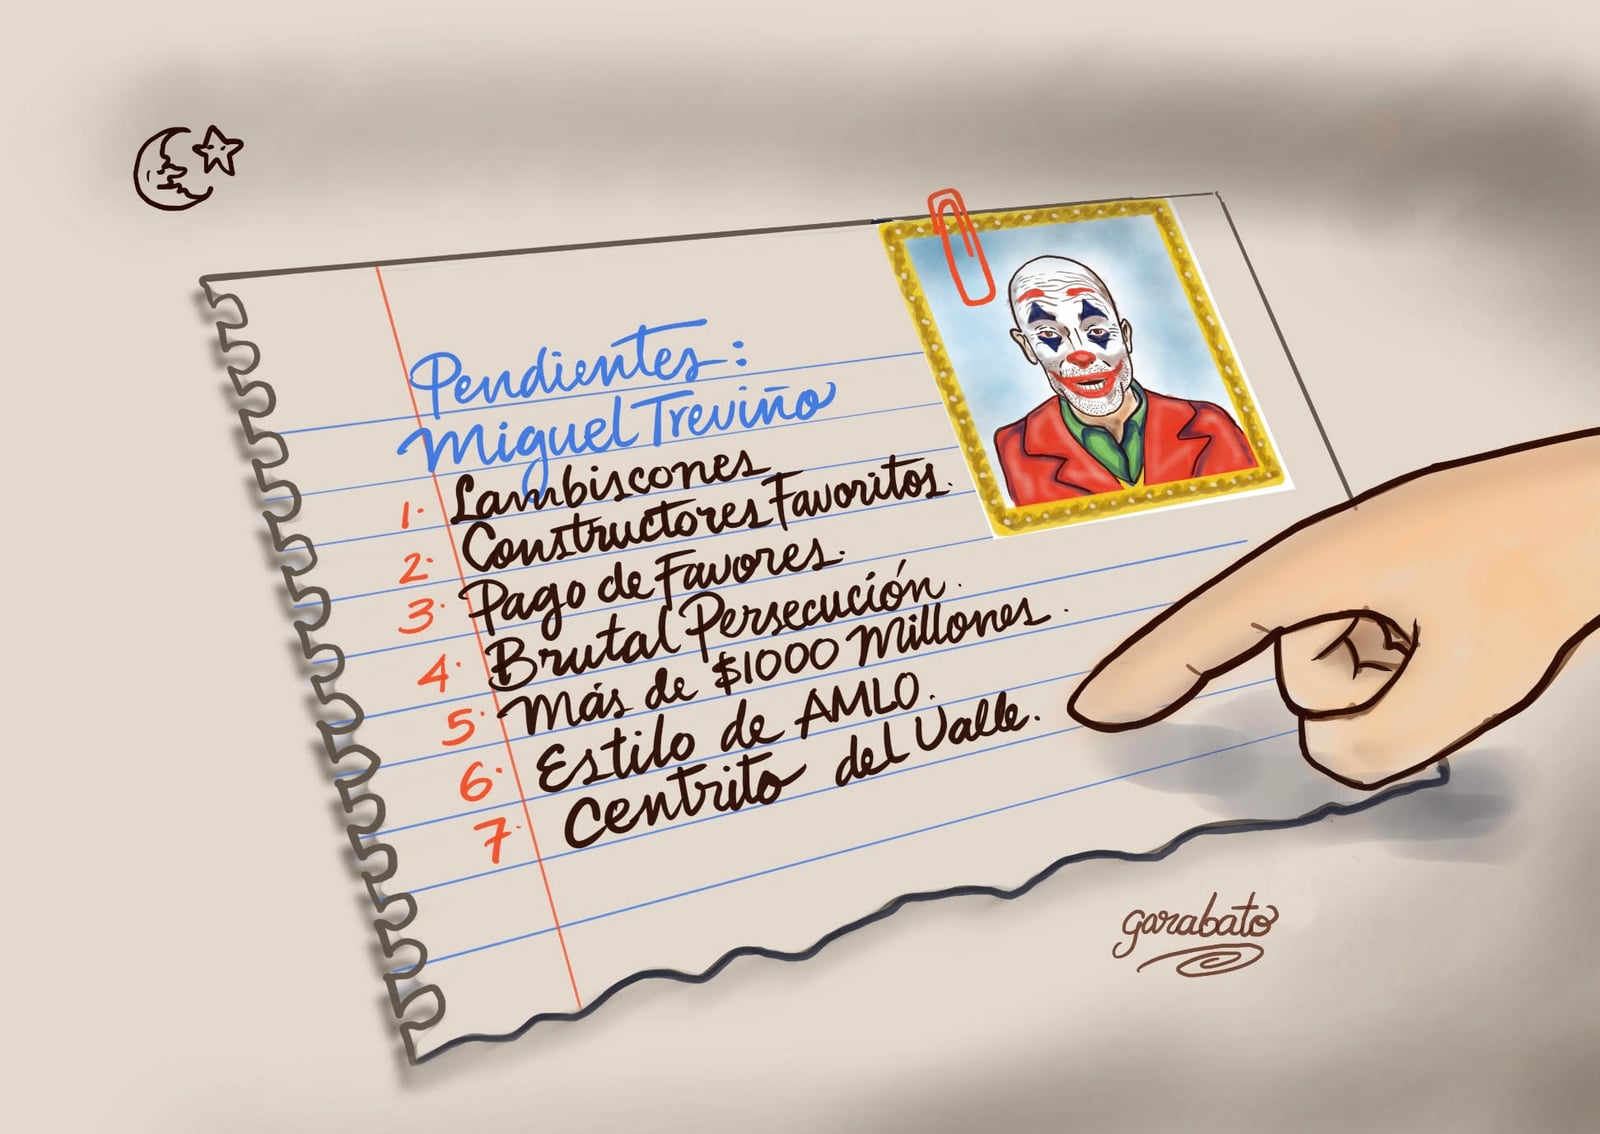 Pendientes:
Miguel Treviño
1. Lambiscones
2. Constructores Favoritos.
3. Pago de Favores.
4. Brutal Persecución.
5. Más de $1000 Millones.
6. Estilo de AMLO.
7. Centrito del Valle.
garabato